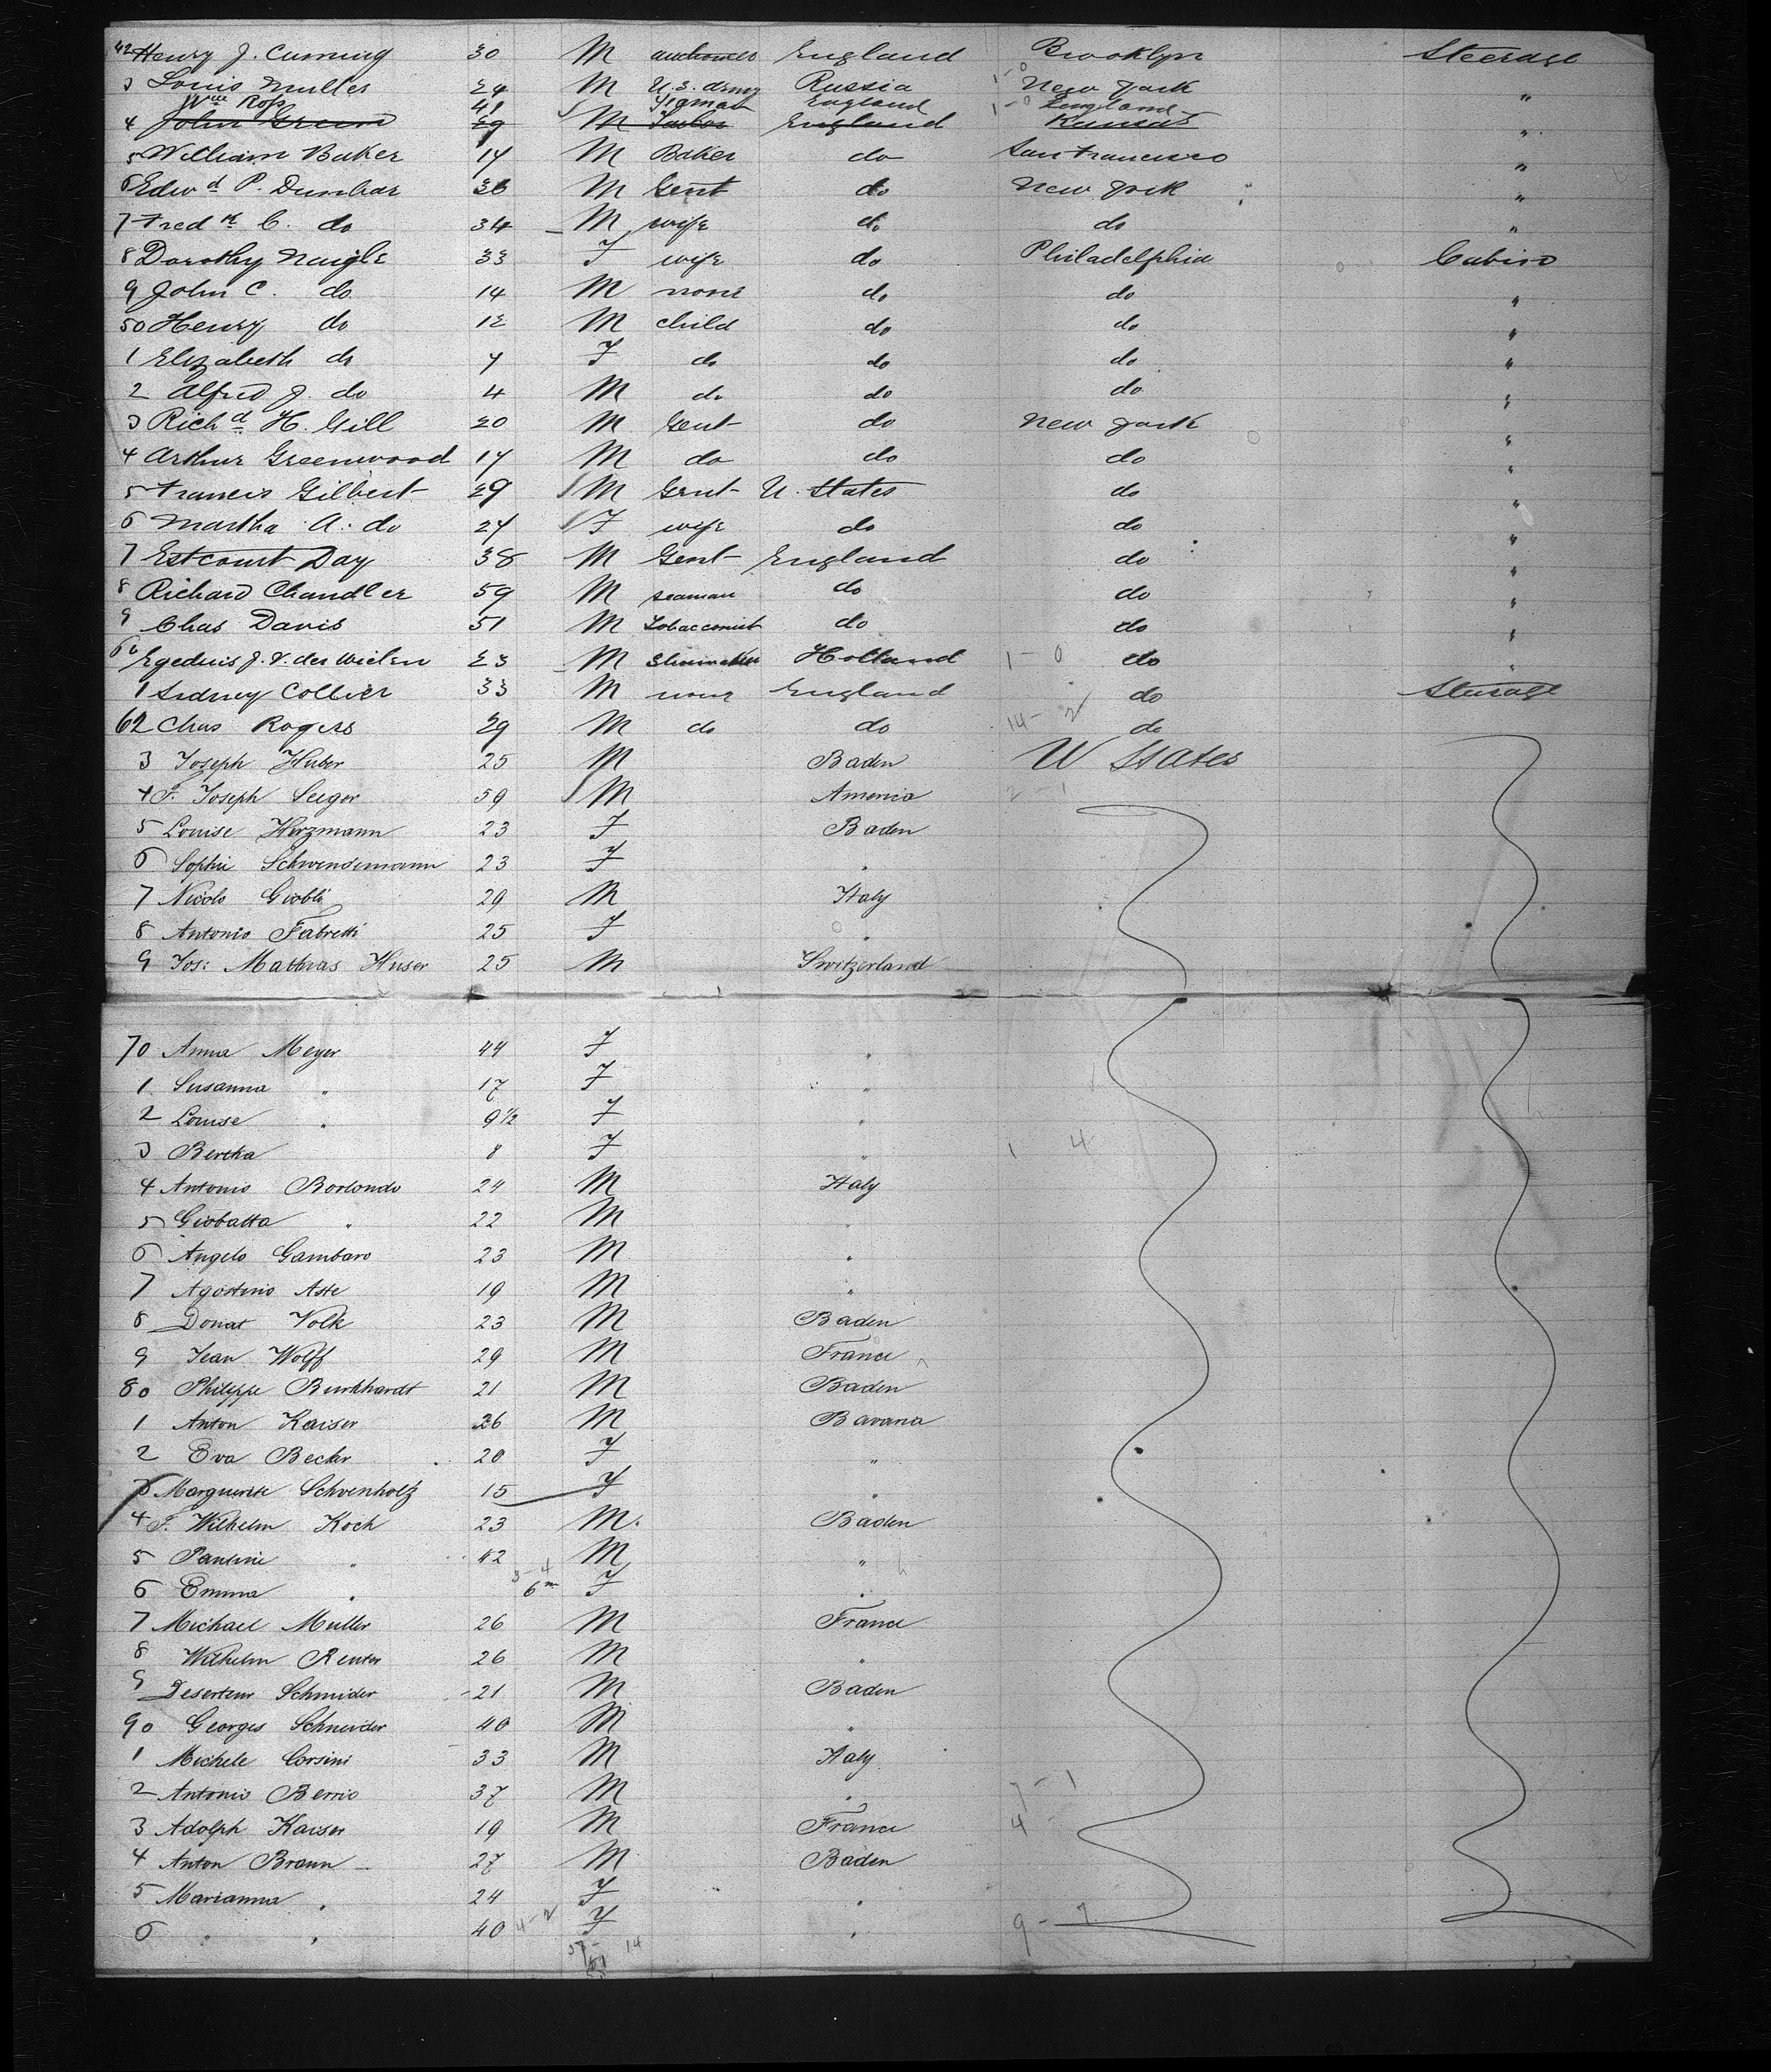 42 Henry J. Cuming 30 M England Brooklyn Steerage
3 Louis Muller 24 M U.S. Army Russia 1-0 New York "
Wm Ross 41 Seaman England 1-0 England
4 John Green 29 M Tailor England Kansas "
5 William Baker 17 M Baker do San Francisco "
6 Edwd P. Dunbar 36 M Gent do New York "
7 Fredk C. do 34 M wife do do "
8 Dorothy Naigle 33 F wife do Philadelphia Cabin
9 John C. do 14 M none do do "
50 Henry do 12 M child do do "
1 Elizabeth do 7 F do do do "
2 Alfred J. do 4 M do do do "
3 Richd H. Gill 20 M Gent do New York "
4 Arthur Greenwood 17 M do do do "
5 Francis Gilbert 29 M Gent U. States do "
6 Martha A. do 27 F wife do do "
7 Estcourt Day 38 M Gent England do "
8 Richard Chandler 59 M seaman do do "
9 Chas Davis 51 M Tobacconist do do "
60 Egeduis J. V. der Wielen 23 M Shoemaker Holland 1-0 do "
1 Sidney Collier 33 M none England do Steerage
62 Chas Rogers 29 M do do 14-2 do
3 Joseph Huber 25 M Baden U States
4 F. Joseph Seeger 59 M America 2 1
5 Louise Herzmann 23 F Baden
6 Sophie Schwendemann 23 F "
7 Nicolo Giobbi 29 M Italy
8 Antonio Fabretti 25 F "
9 Jos: Mathias Huser 25 M Switzerland
70 Anna Meyer 44 F "
1 Susanna " 17 F "
2 Louise " 9 1/2 F "
3 Bertha 8 F " 1 4
4 Antonio Borlondo 24 M Italy
5 Giobatta " 22 M "
6 Angelo Gambaro 23 M "
7 Agostino Aste 19 M "
8 Donat Volk 23 M Baden
9 Jean Wolff 29 M France
80 Philippe Burkhardt 21 M Baden
1 Anton Kaiser 26 M Bavaria
2 Eva Becker 20 F "
3 Marguerite Schoenholz 15 F "
4 F. Wilhelm Koch 23 M. Baden
5 Pauline " 42 M "
6 Emma " 6m F "
7 Michael Muller 26 M France
8 Wilhelm Reuter 26 M "
9 Deserteur Schmider 21 M Baden
90 Georges Schneider 40 M "
1 Michele Corsini 33 M Italy
2 Antonio Berrio 37 M " 7-1
3 Adolph Kaiser 19 M France 4
4 Anton Braun 27 M Baden
5 Marianna " 24 F "
6 " " 40 4-2 F " 9-7
14